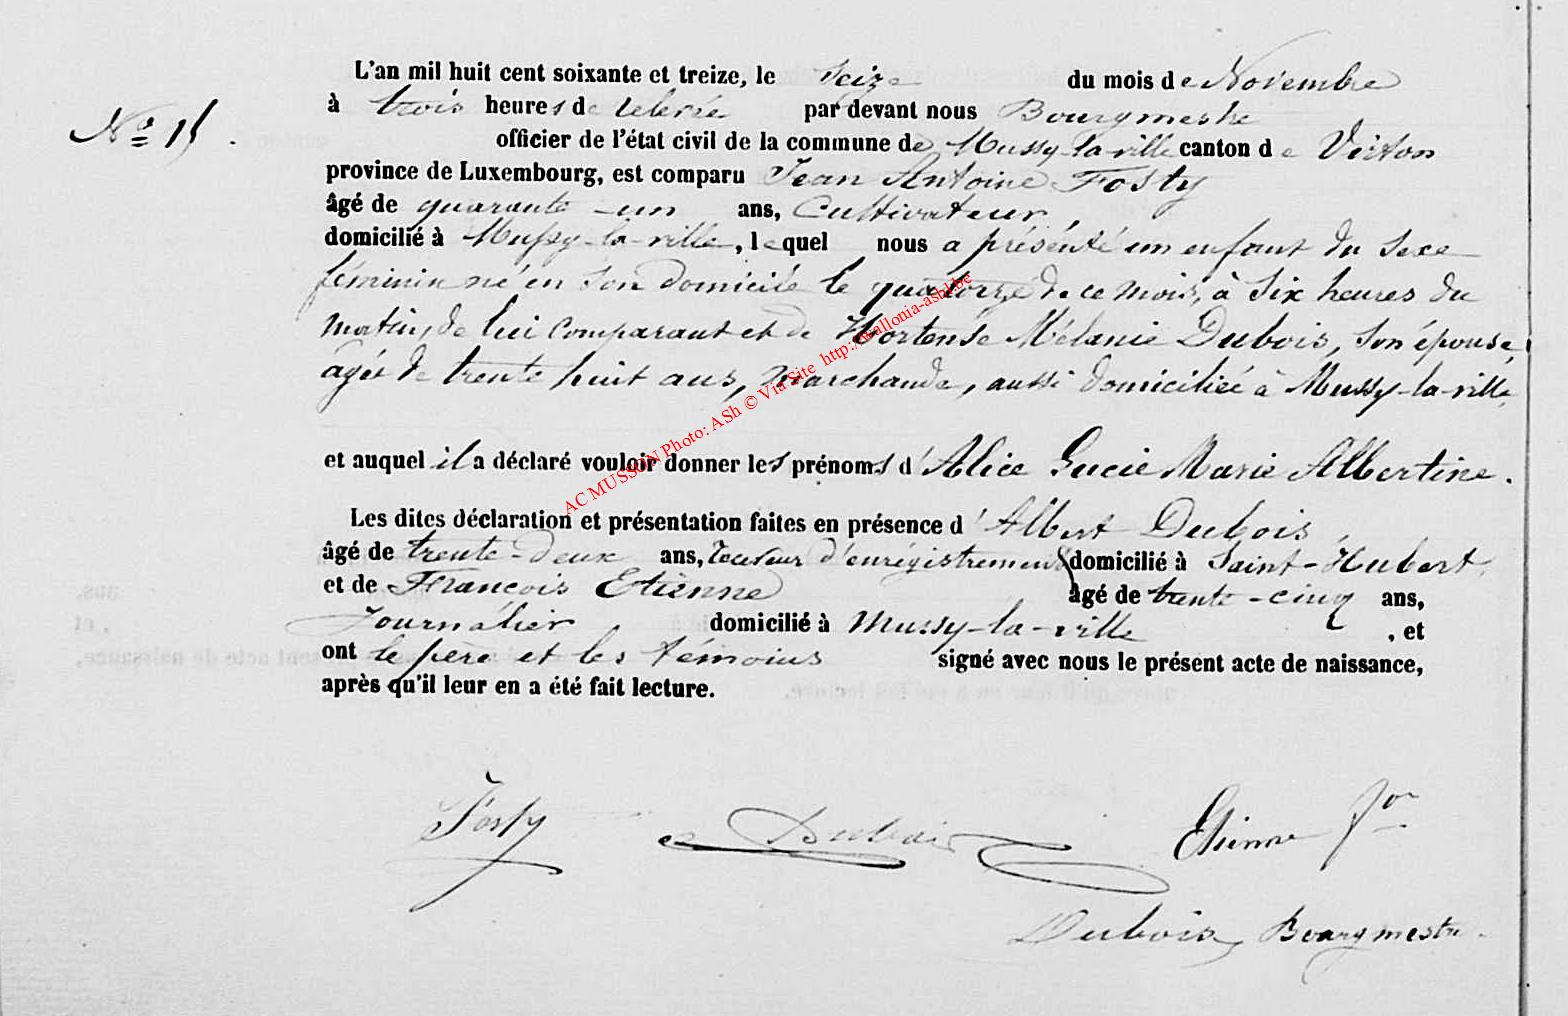 L'an mil huit cent soixante et treize, le Seize du mois de Novembre
à trois heures de relevée par devant nous Bourgmestre
Nº 15. officier de l'état civil de la commune de Mussy-la-ville canton de Virton
province de Luxembourg, est comparu Jean Antoine Fosty
âgé de quarante-un ans, Cultivateur,
domicilié à Mussy-la-ville, lequel nous a présenté un enfant du sexe
féminin né en son domicile le quatorze de ce mois, à six heures du
matin, de lui comparant et de Hortense Mélanie Dubois, son épouse,
agée de trente huit ans, marchande, aussi domiciliée à Mussy-la-ville,
et auquel il a déclaré vouloir donner les prénoms d'Alice Lucie Marie Albertine.
Les dites déclaration et présentation faites en présence d'Albert Dubois,
âgé de trente-deux ans, receveur d'enrégistrement domicilié à Saint-Hubert,
et de François Etienne âgé de trente-cinq ans,
Journalier domicilié à Mussy-la-ville , et
ont le père et les témoins signé avec nous le présent acte de naissance,
après qu'il leur en a été fait lecture.
AC MUSSON Photo: ASh © Via Site http://wallonia-asbl.be
Fosty Dubois Etienne for
Dubois, Bourgmestre.